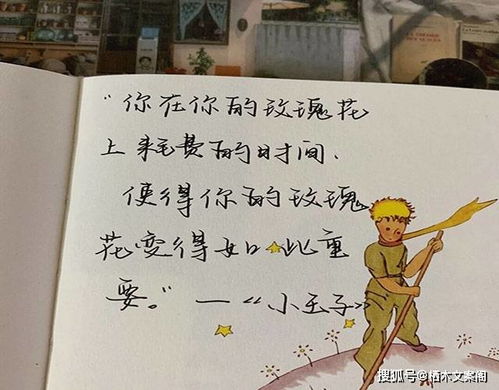 “你在你的玫瑰花
上耗费的时间、
使得你的玫瑰
花变得如此重
要。”—《小王子》
搜狐号@栖木文案阁